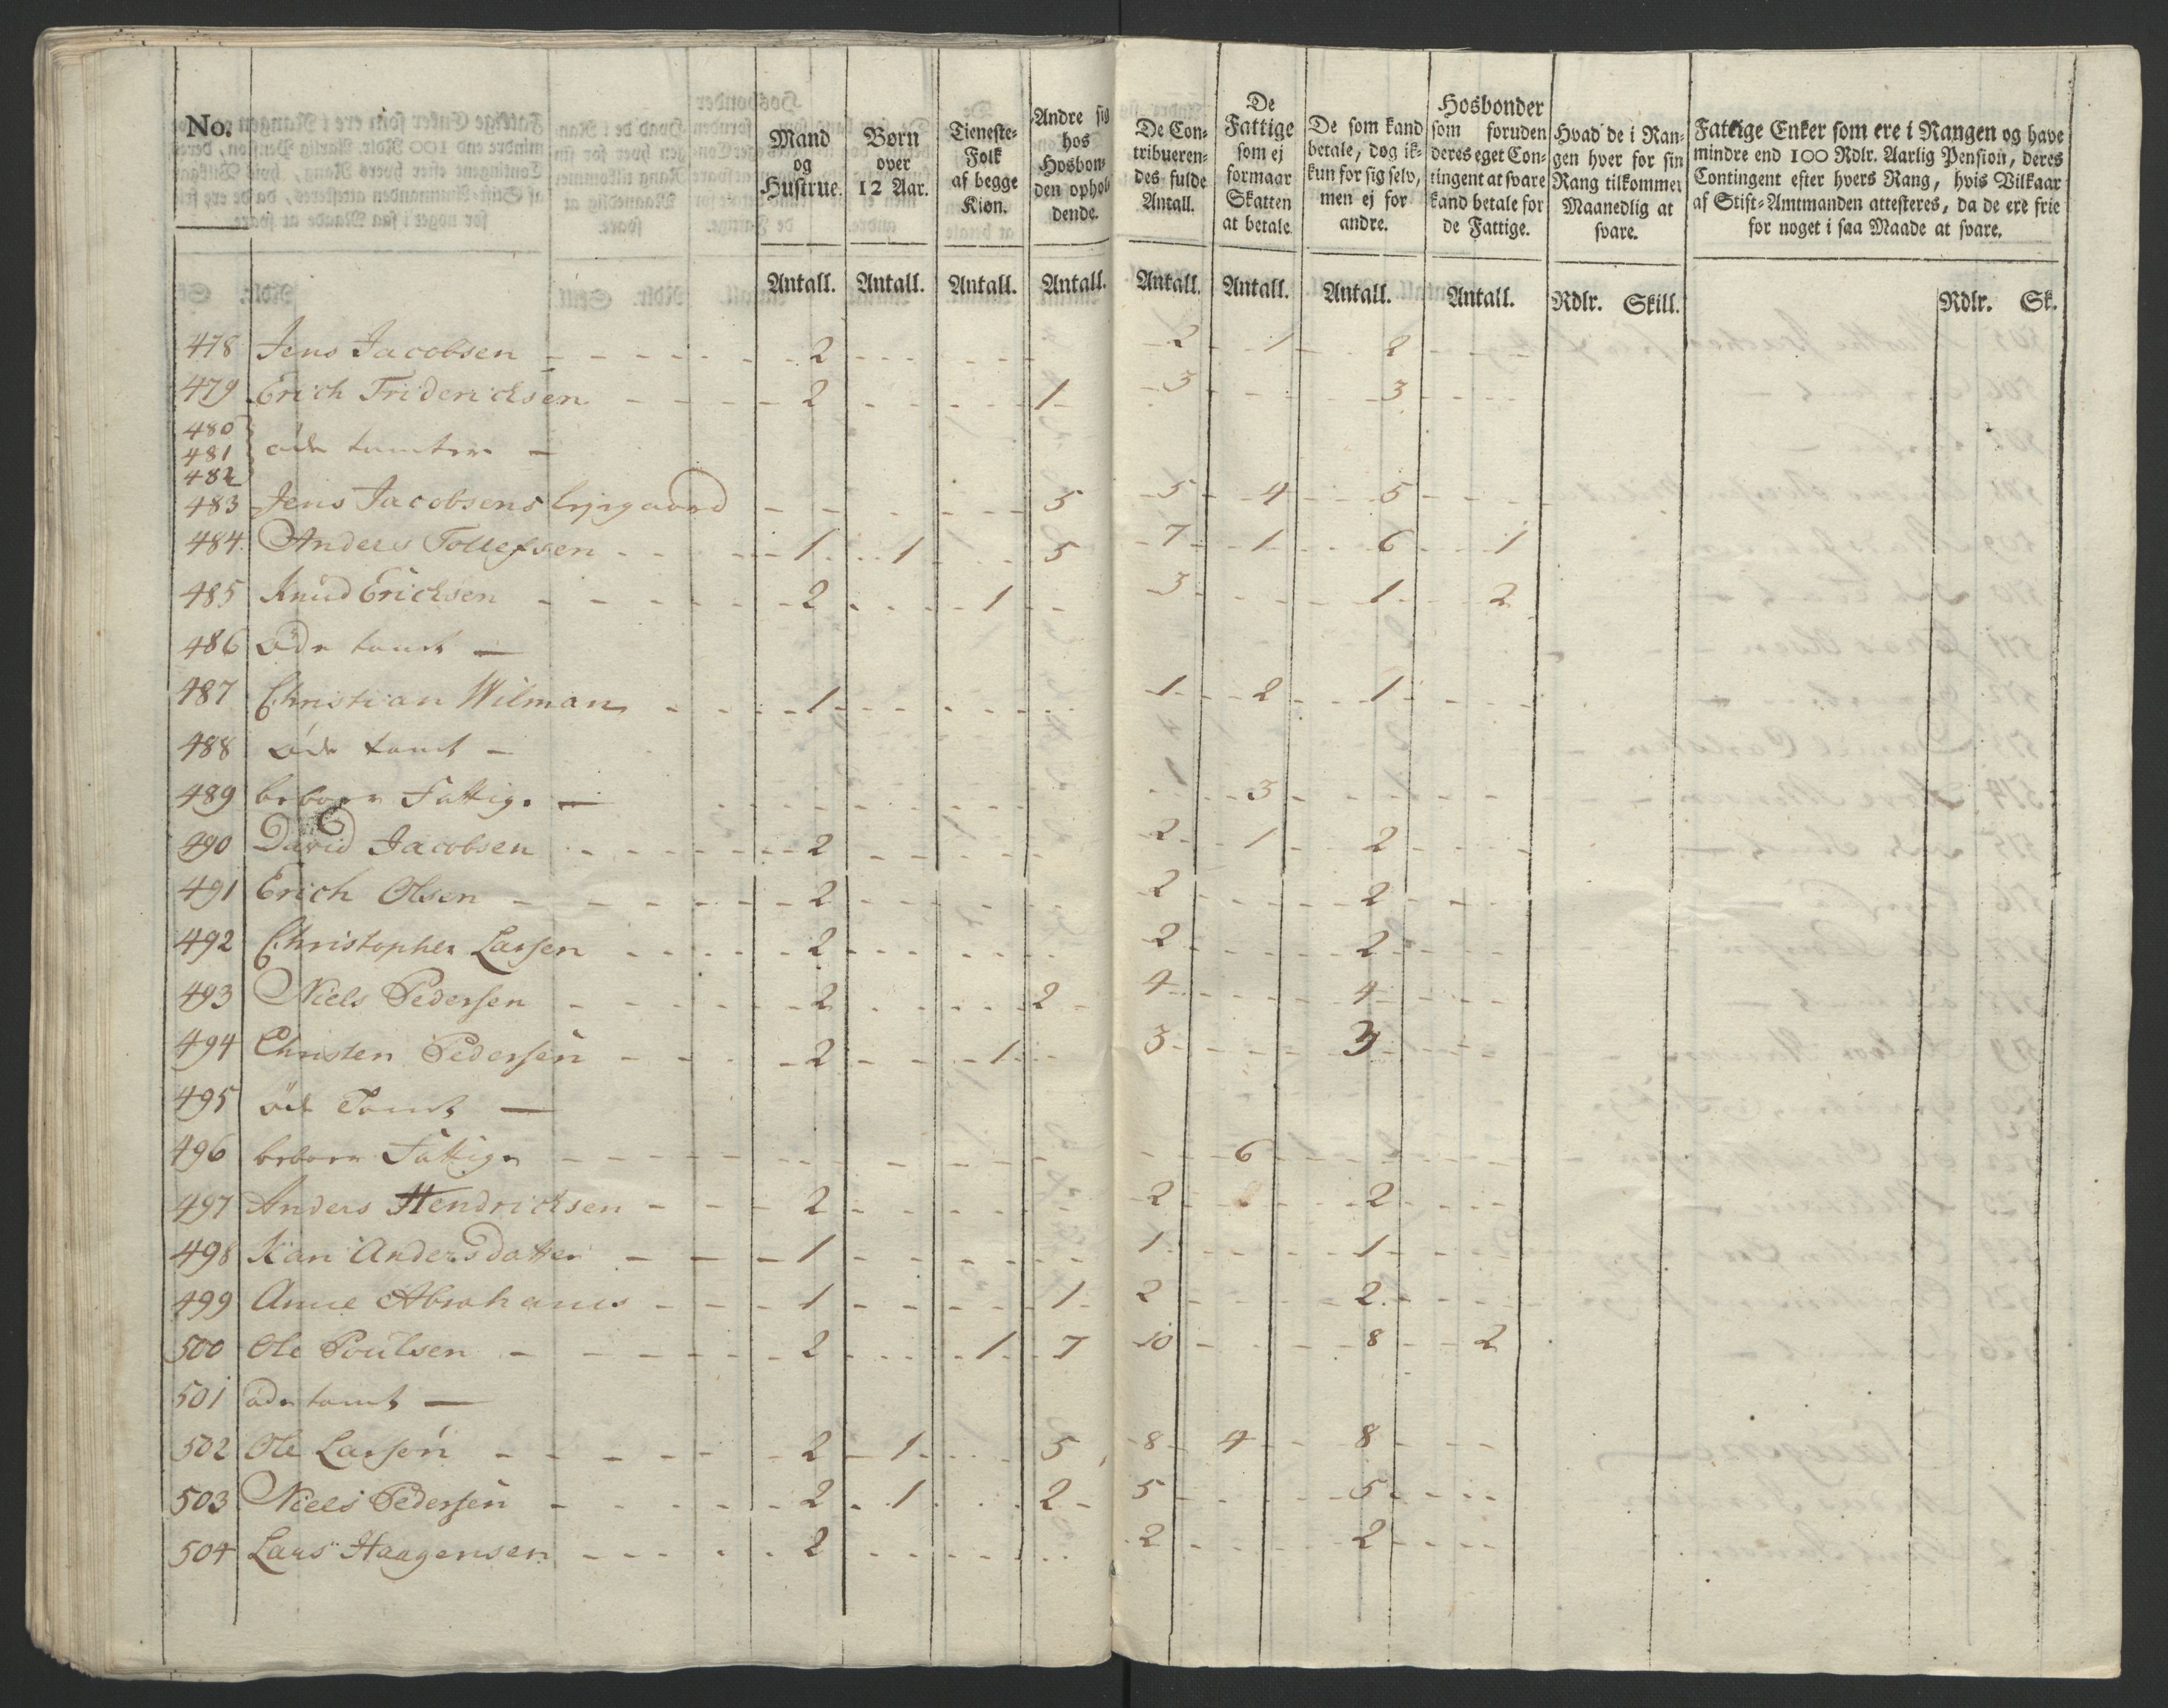 No.
Mand og Hustrue.
Børn over 12 Aar.
Tieneste-Folk af begge Kiøn.
Andre sig hos Hosbonden opholdende.
De Contribuerendes fulde Antall.
De Fattige som ej formaar Skatten at betale.
De som kand betale, dog ikkun for sig selv, men ej for andre.
Hosbonder som foruden deres eget Contingent at svare kand betale for de Fattige.
Hvad de i Rangen hver for sin Rang tilkommer Maanedlig at svare.
Fattige Enker som ere i Rangen og have mindre end 100 Rdlr. Aarlig Pension, deres Contingent efter hvers Rang, hvis Vilkaar af Stift-Amtmanden attesteres, da de ere frie for noget i saa Maade at svare.
Antall. Antall. Antall. Antall. Antall. Antall. Antall. Antall. Rdlr. Skill. Rdlr. Sk.
478 Jens Jacobsen - 2 - 2 - 1 - 2
479 Erich Friderichsen - 2 - 1 - 3 - 3
480
481 øde tomter -
482
483 Jens Jacobsens leyegaard - 5 - 5 - 4 - 5
484 Anders Tollefsen - 1 - 1 - 5 - 7 - 1 - 6 - 1
485 Knud Erichsen - 2 - 1 - 3 - 1 - 2
486 øde tomt -
487 Christian Wilman - 1 - 1 - 2 - 1
488 øde tomt -
489 beboer Fattige - 3
490 David Jacobsen - 2 - 2 - 1 - 2
491 Erich Olsen - 2 - 2 - 2
492 Christopher Larsen - 2 - 2 - 2
493 Niels Pedersen - 2 - 2 - 4 - 4
494 Christen Pedersen - 2 - 1 - 3 - 3
495 øde Tomt -
496 beboer Fattige - 6
497 Anders Hendrichsen - 2 - 2 - 2
498 Kari Andersdatter - 1 - 1 - 1
499 Anne Abrahams - 1 - 1 - 2 - 2
500 Ole Poulsen - 2 - 1 - 7 - 10 - 8 - 2
501 øde tomt -
502 Ole Larsen - 2 - 1 - 5 - 8 - 4 - 8
503 Niels Pedersen - 2 - 1 - 2 - 5 - 5
504 Lars Haagensen - 2 - 2 - 2